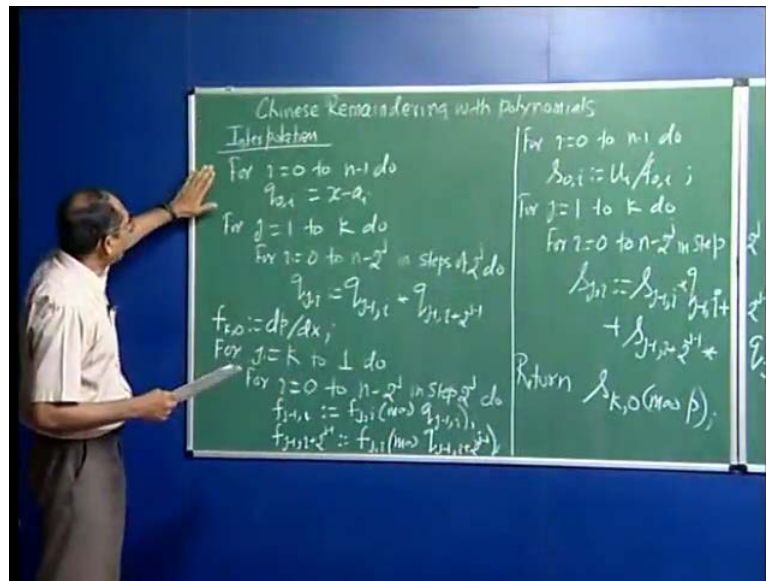 Chinese Remaindering with polynomials
Interpolation
For i=0 to n-1 do
q_{0,i} = x-a_i
For j=1 to k do
For i=0 to n-2^j in steps of 2^j do
q_{j,i} = q_{j-1,i} * q_{j-1,i+2^{j-1}}
f_{k,0} := dp/dx;
For j:=k to 1 do
For i=0 to n-2^j in Step 2^j do
f_{j-1,i} := f_{j,i} (mod q_{j-1,i}),
f_{j-1,i+2^{j-1}} := f_{j,i} (mod q_{j-1,i+2^{j-1}}),
For i=0 to n-1 do
s_{0,i} := u_i/f_{0,i};
For j=1 to k do
For i=0 to n-2^j in step 2^j
s_{j,i} := s_{j-1,i} * q_{j-1,i+
+ s_{j-1,i+2^{j-1}} *
Return s_{k,0} (mod p);